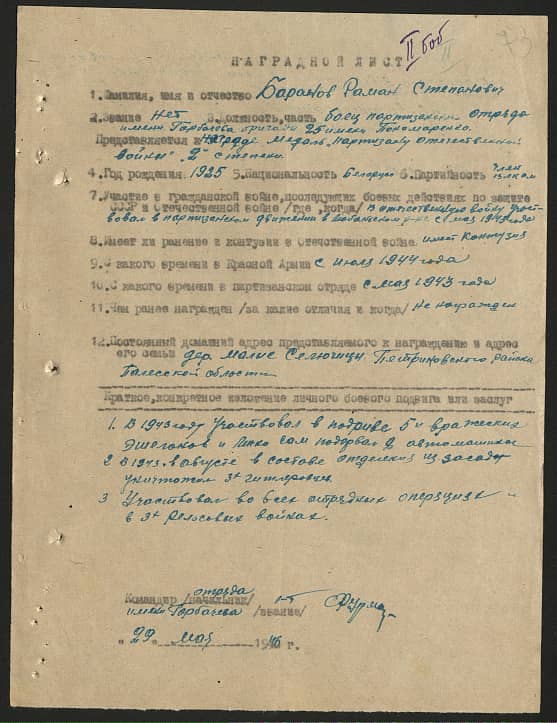 II боб
73
НАГРАДНОЙ ЛИСТ
1.Фамилия, имя и отчество Баранов Раман Степанович
2.Звание нет 3.Должность,часть боец партизанск отряда
имени Горбачева бригады 25 имени Пономаренко.
Представляется к награде Медаль „партизану отечественной
войны" 2й степени
4.Год рождения 1925 5.Национальность Беларус 6.Партийность член
влксм
7.Участие в гражданской войне,последующих боевых действиях по защите
СССР и Отечественной войне /где,когда/ В отечественную войну участ-
вовал в партизанском движении в с мая 1943 года
8.Имеет ли ранение и контузии в Отечественной войне имеет Контузия
9.С какого времени в Красной Армии с Июля 1944 года
10.С какого времени в партизанском отряде с мая 1943 года
11.Чем ранее награжден /за какие отличия и когда/ не награжден
12.Постоянный домашний адрес представляемого к награждению и адрес
его семьи дер Малые Селютичи Петриковского района
Полесской области
Краткое,конкретное изложение личного боевого подвига или заслуг
1. В 1943 году Участвовал в подриве 5и вражеских
Эшелонов и лично сам подорвал 2 автомашины
2 В 1943 в августе в составе отделения из засады
уничтожил 3х гитлеровцев
3 Участвовал во всех отрядных операциях и
в 3х Рельсовых войнах.
отряда
Командир /начальник/
имени Горбачева /звание/
„29 мая 1946 г.